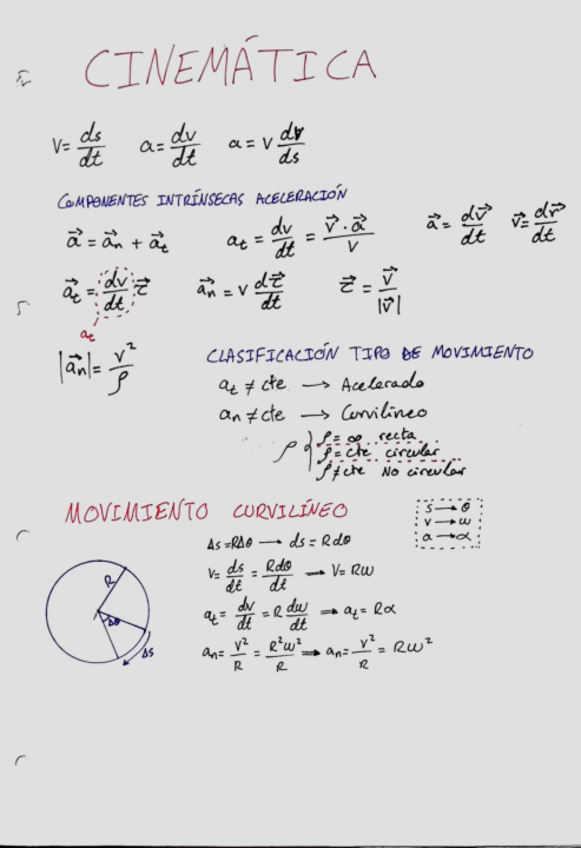 CINEMÁTICA
V = ds/dt a = dv/dt a = v dv/ds
COMPONENTES INTRÍNSECAS ACELERACIÓN
a⃗ = a⃗n + a⃗t at = dv/dt = v⃗ · a⃗ / v a⃗ = dv⃗/dt v⃗ = dr⃗/dt
a⃗t = dv/dt τ⃗ a⃗n = v dτ⃗/dt τ⃗ = v⃗/|v⃗|
at
|a⃗n| = v²/ρ
CLASIFICACIÓN TIPO DE MOVIMIENTO
at ≠ cte → Acelerado
an ≠ cte → Curvilíneo
ρ { ρ = ∞ recta
ρ = cte circular
ρ ≠ cte No circular
MOVIMIENTO CURVILÍNEO
s → θ
v → ω
a → α
Δs = RΔθ → ds = Rdθ
V = ds/dt = Rdθ/dt → V = Rω
at = dv/dt = R dω/dt → at = Rα
an = v²/R = R²ω²/R → an = v²/R = Rω²
R
Δθ
Δs